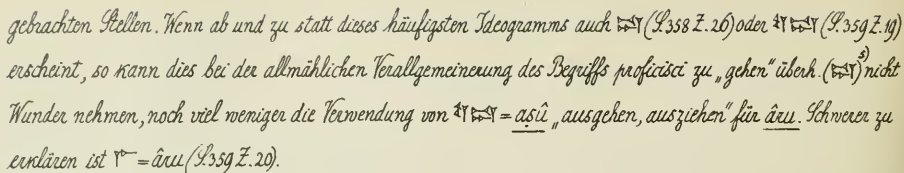 gebrachten Stellen. Wenn ab und zu statt dieses häufigsten Ideogramms auch (S. 358 Z. 26) oder (S. 359 Z. 19)
erscheint, so kann dies bei der allmählichen Verallgemeinerung des Begriffs proficisci zu „gehen“ überh. () nicht
Wunder nehmen, noch viel weniger die Verwendung von = aṣû „ausgehen, ausziehen“ für âru. Schwerer zu
erklären ist = âru (S. 359 Z. 20).